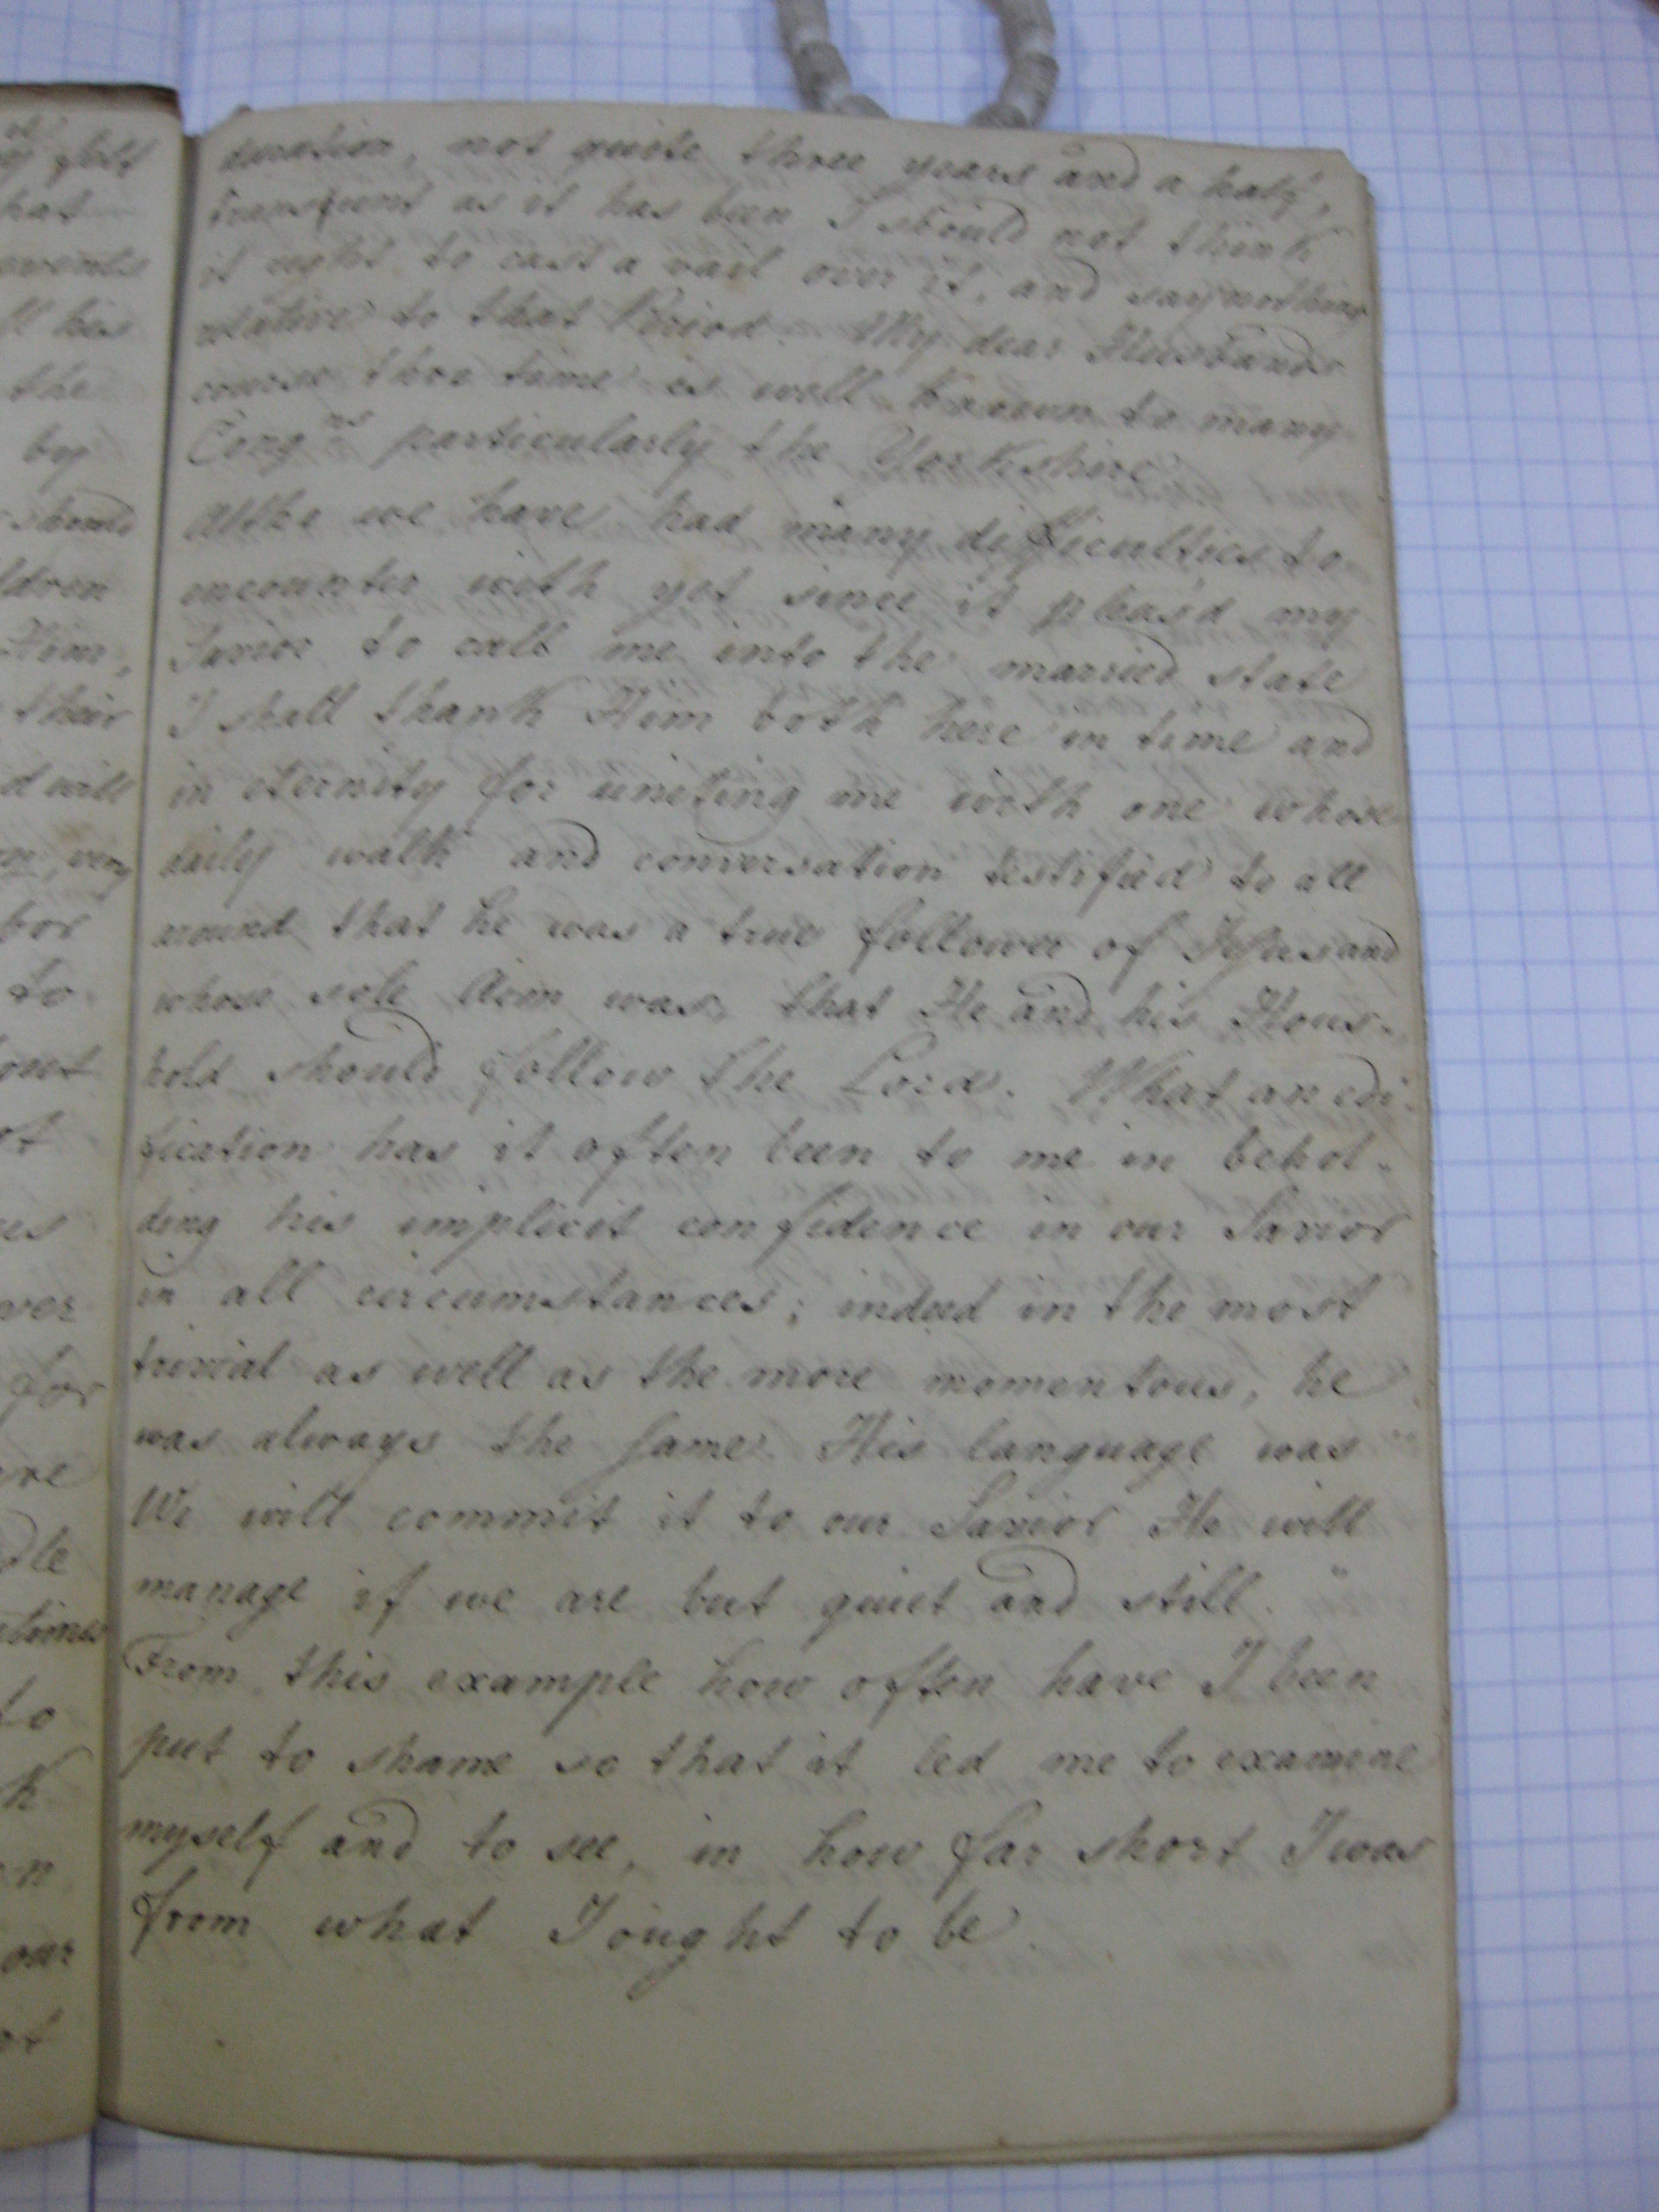 duration, not quite three years and a half,
transient as it has been I should not think
it right to cast a vail over it, and say nothing
relative to that Period. My dear Husbands
course thro time is well known to many
Congns particularly the Yorkshire
Altho we have had many difficulties to
encounter with yet since it pleas'd my
Savior to call me into the married state
I shall thank Him both here in time and
in eternity for uniting me with one whose
daily walk and conversation testified to all
around that he was a true follower of Jesus and
whose sole Aim was, that He and his Hous-
hold should follow the Lord. What an edi-
fication has it often been to me in behol-
ding his implicit confidence in our Savior
in all circumstances; indeed in the most
trivial as well as the more momentous, he
was always the same. His language was "
We will commit it to our Savior He will
manage if we are but quiet and still. "
From this example how often have I been
put to shame so that it led me to examine
myself and to see, in how far short I was
from what I ought to be
felt
hat
events
ll his
the
by
should
ldren
Him,
their
d will
very
bor
to
out
ot
es
ver
for
re
dle
times
to
k
n
our
ot